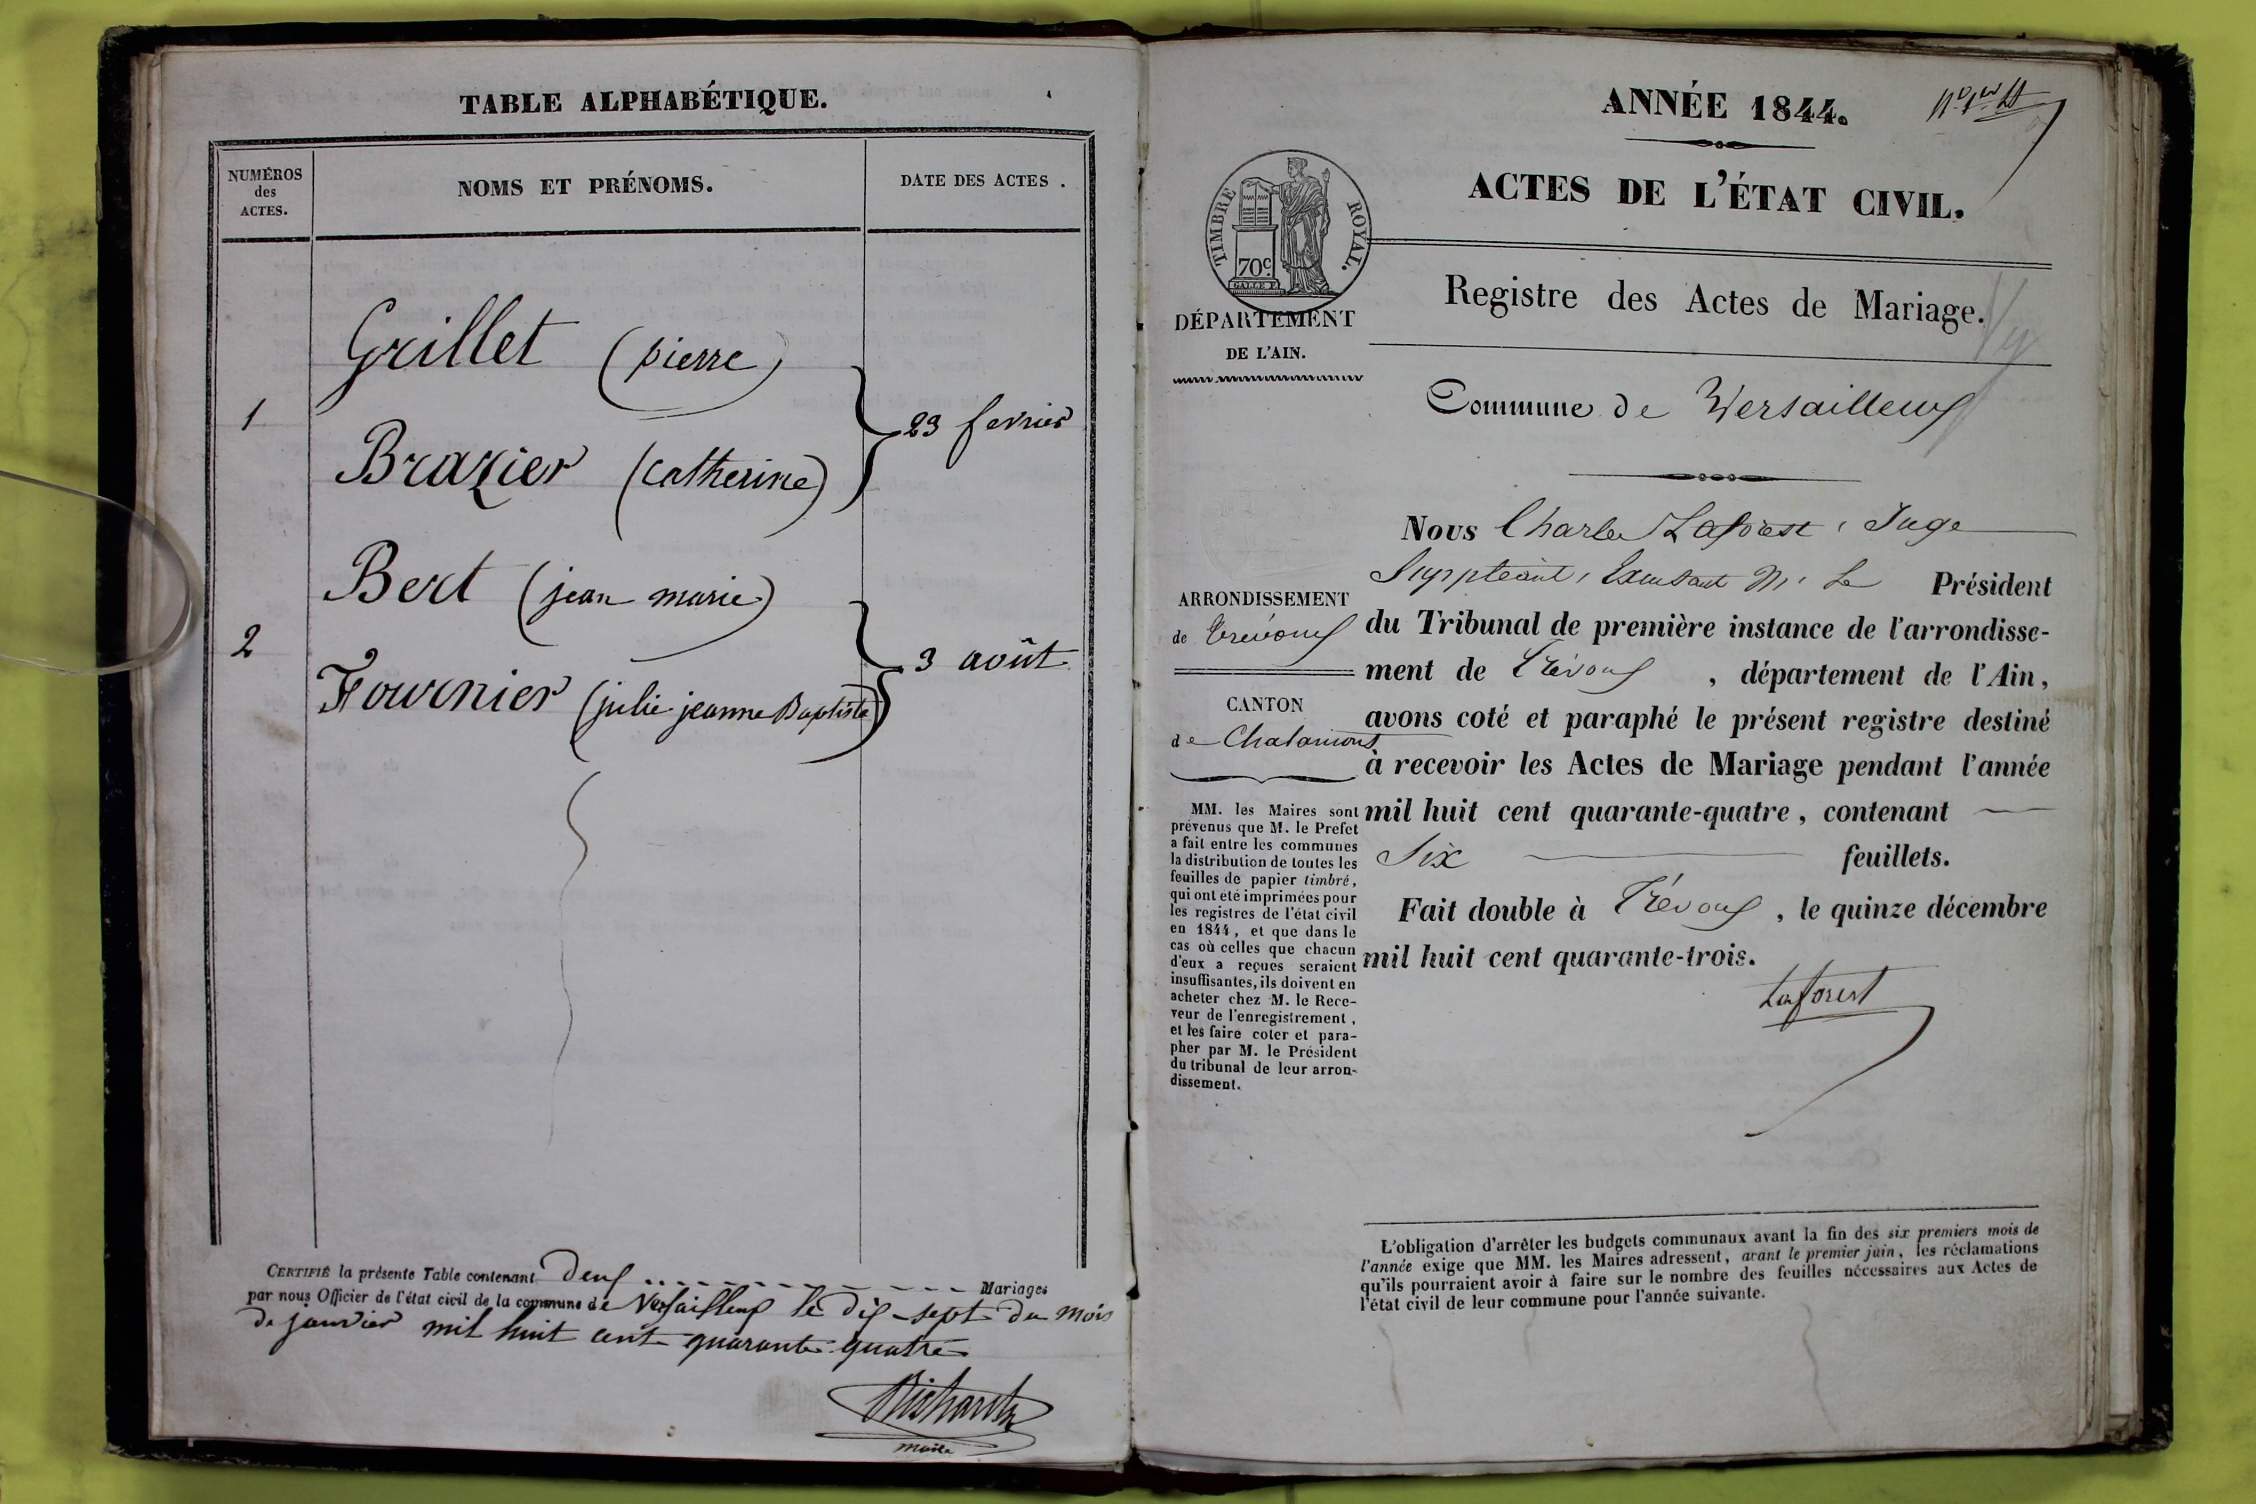 TABLE ALPHABÉTIQUE.
NUMÉROS
des
ACTES.
NOMS ET PRÉNOMS.
DATE DES ACTES.
Grillet (pierre)
1
23 fevrier
Brazier (Catherine)
Bert (jean marie)
2
3 août
Fournier (julie jeanne Baptiste)
CERTIFIÉ la présente Table contenant Deux Mariages
par nous Officier de l'état civil de la commune de Versailleux le dix-sept du mois
de janvier mil huit cent quarante quatre
Maire
ANNÉE 1844.
ACTES DE L'ÉTAT CIVIL.
TIMBRE ROYAL.
70c
DÉPARTEMENT
DE L'AIN.
Registre des Actes de Mariage.
Commune de Versailleux
ARRONDISSEMENT
de Trévoux
CANTON
de Chalamont
MM. les Maires sont
prévenus que M. le Prefet
a fait entre les communes
la distribution de toutes les
feuilles de papier timbré,
qui ont été imprimées pour
les registres de l'état civil
en 1844, et que dans le
cas où celles que chacun
d'eux a reçues seraient
insuffisantes, ils doivent en
acheter chez M. le Rece-
veur de l'enregistrement,
et les faire coter et para-
pher par M. le Président
du tribunal de leur arron-
dissement.
Nous Charles Laforest, Juge
Suppléant, Excusant M. Le Président
du Tribunal de première instance de l'arrondisse-
ment de Trévoux, département de l'Ain,
avons coté et paraphé le présent registre destiné
à recevoir les Actes de Mariage pendant l'année
mil huit cent quarante-quatre, contenant
Six feuillets.
Fait double à Trévoux, le quinze décembre
mil huit cent quarante-trois.
Laforest
L'obligation d'arrêter les budgets communaux avant la fin des six premiers mois de
l'année exige que MM. les Maires adressent, avant le premier juin, les réclamations
qu'ils pourraient avoir à faire sur le nombre des feuilles nécessaires aux Actes de
l'état civil de leur commune pour l'année suivante.